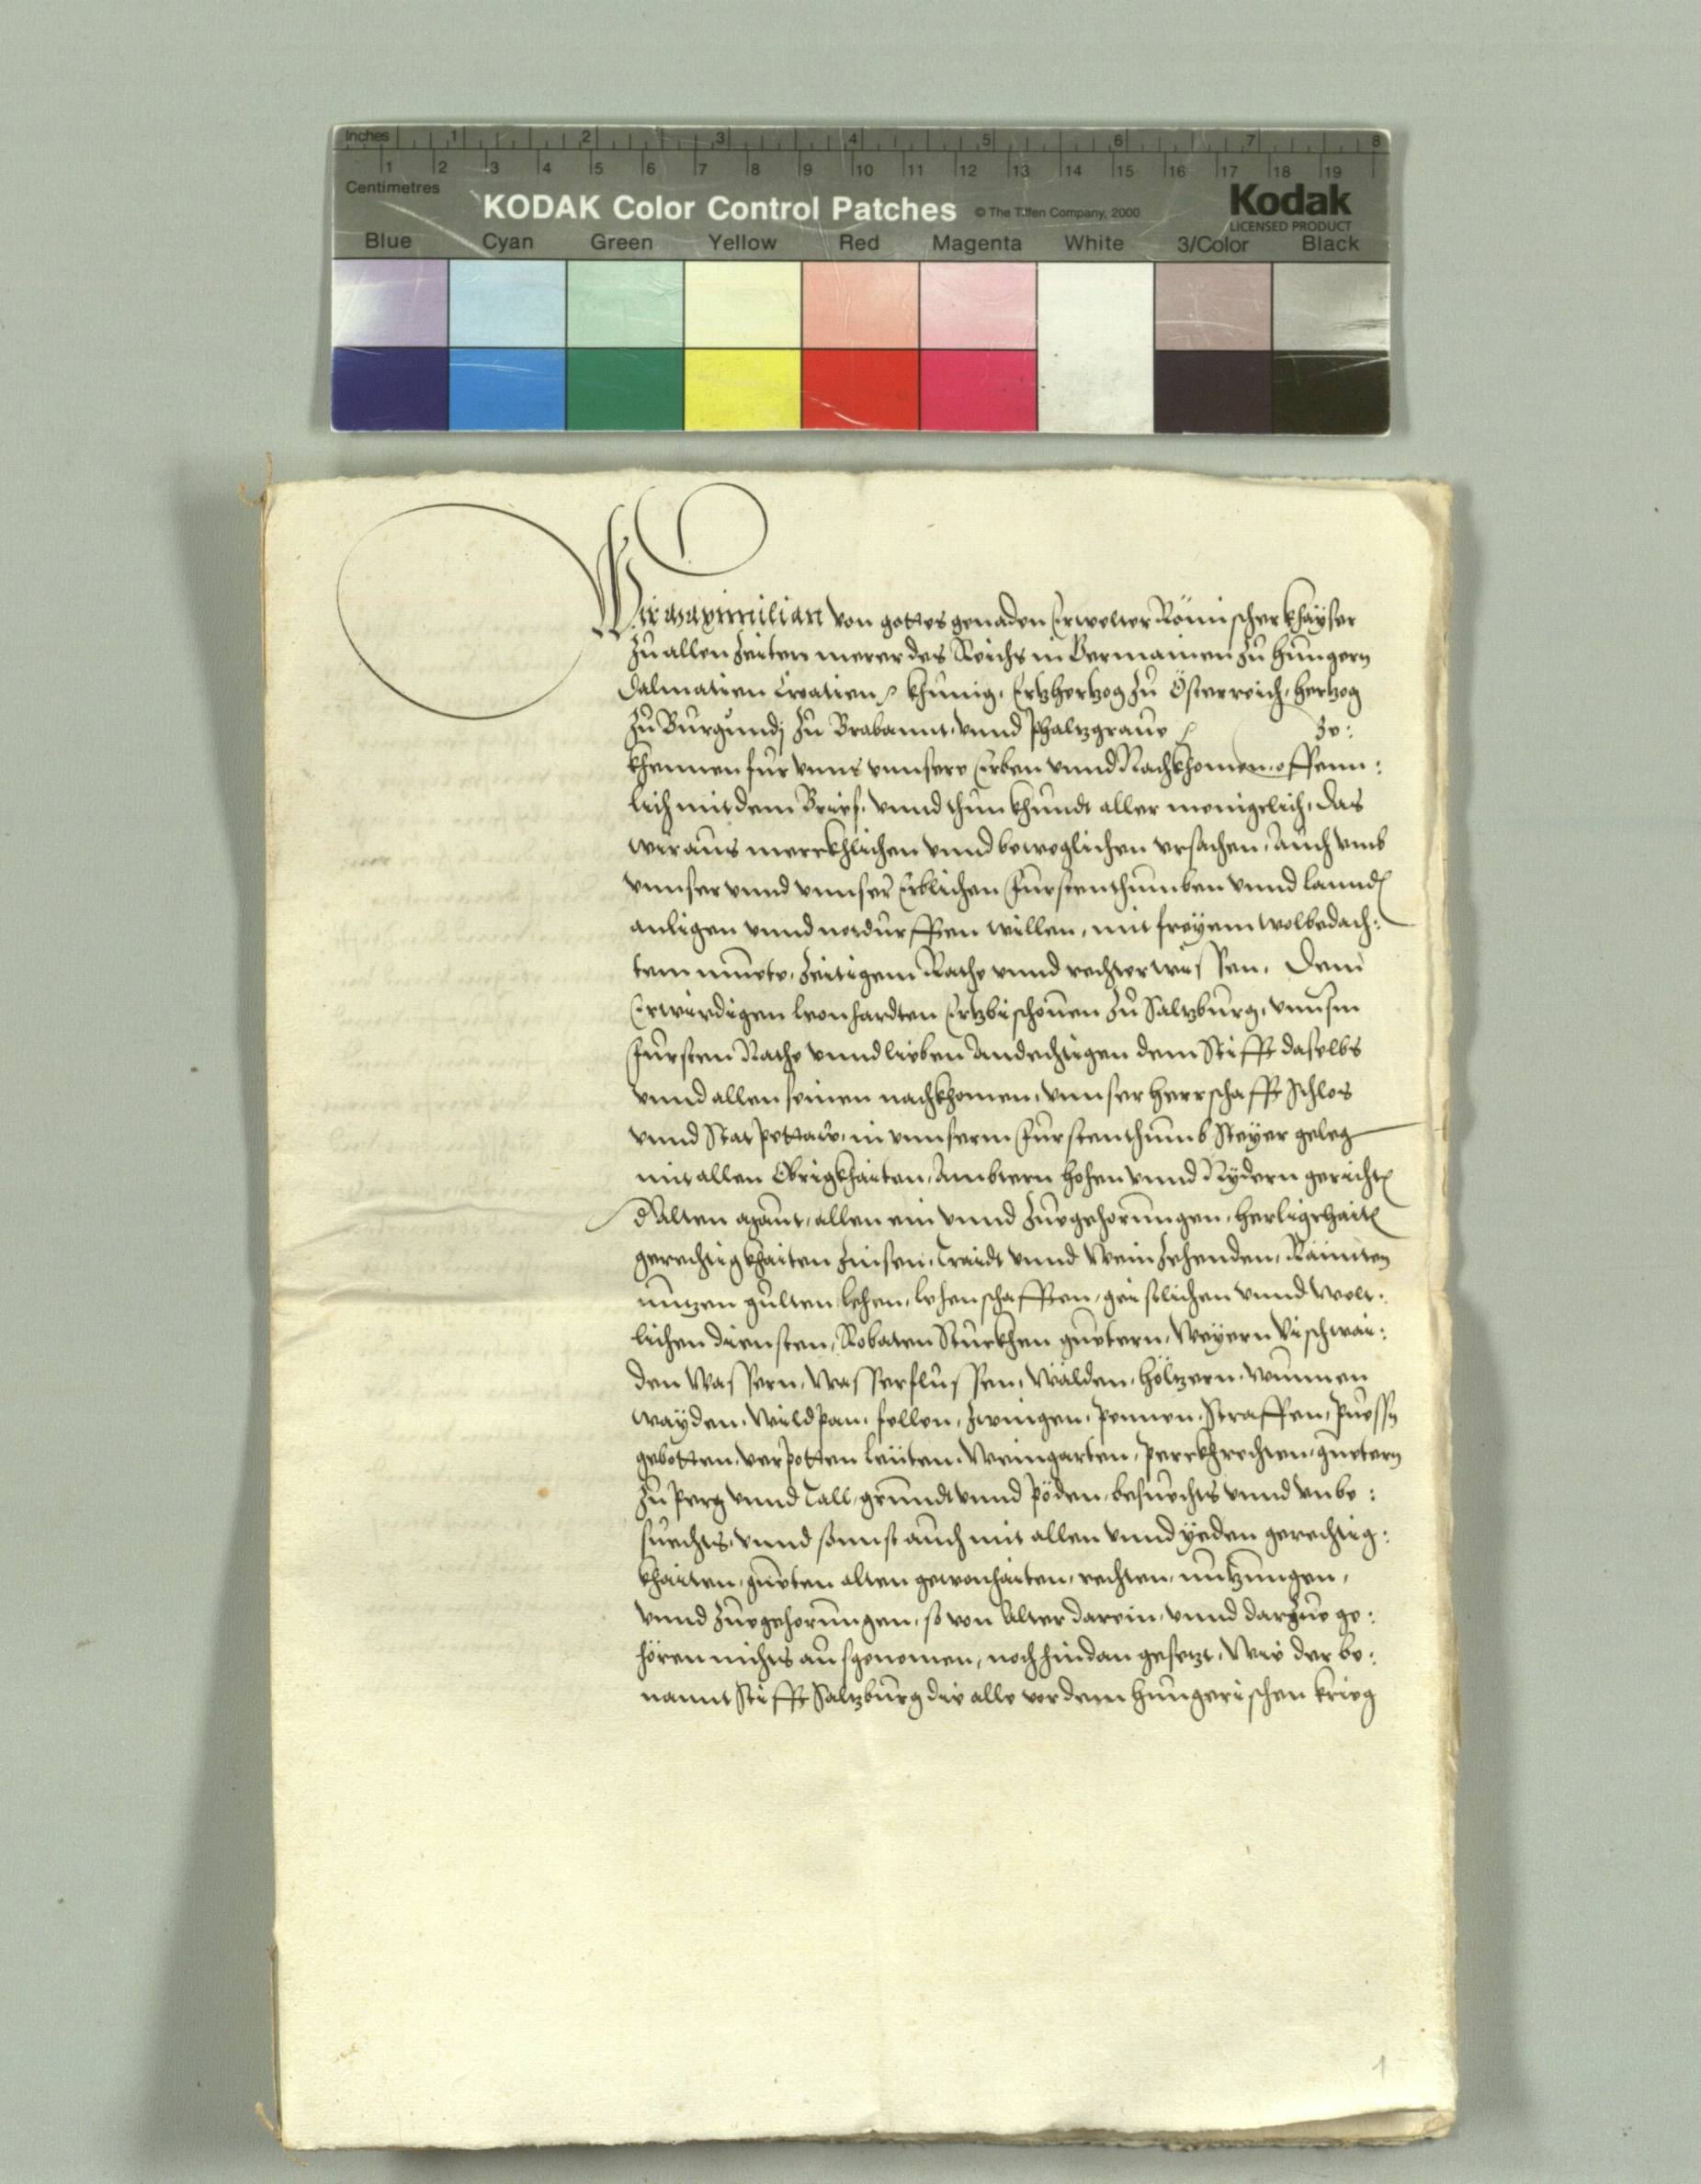 Inches 1 2 3 4 5 6 7 8
1 2 3 4 5 6 7 8 9 10 11 12 13 14 15 16 17 18 19
Centimetres
KODAK Color Control Patches © The Tiffen Company, 2000 Kodak
LICENSED PRODUCT
Blue Cyan Green Yellow Red Magenta White 3/Color Black
Wir Maximilian von gottes genaden Erwelter Römischer khayser
Zu allen Zeiten merer des Reichs in Germanien Zu Hungern
Dalmatien Croatien khunig, Ertzhertzog Zu Österreich, hertzog
Zu Burgundj Zu Brabannt, vnnd Phaltzgraue Be:
khennen fur vnns vnnsere Erben vnnd Nachkhomen offenn:
lich mit dem Brief, vnnd thun khundt aller menigelich, das
wir aus merrkhlichen vnnd beweglichen vrsachen, Auch vmb
vnnser vnnd vnnser Erblichen Furstenthumben vnnd lannd
anligen vnnd notdurfften willen, mit freyem wolbedach:
tem muete, Zeitigem Rathe vnnd rechter wissen, Dem
Erwirdigen Leonhardten Ertzbischouen Zu Saltzburg, vnnsm
Fursten Rathe vnnd lieben Andechtigen dem Stifft daselbs
vnnd allen seinen nachkhomen, vnnser herrschafft Schlos
vnnd Stat Pettaw, in vnnserm Furstenthumb Steyer geleg
mit allen Obrigkhaiten, Ambtern hohen vnnd Nydern gericht
d Alten Maut, allen ein vnnd Zuegehorungen, herligkhait
gerechtigkhaiten Zinsen, Traidt vnnd Wein Zehenden, Rännten
nutzen gulten lehen, lehenschafften, geistlichen vnnd welt:
lichen diensten, Robaten Stuckhen guetern, Weyern Vischwai:
den Wassern, Wasserflussen, Wälden, höltzern, wunnen
wayden, Wildpan, fellen, Zwingen, Pennen, Straffen, Puessn
gebotten, verpotten leuten, Weingarten, Perckhrechten, guetern
Zu Perg vnnd Tall, grundt vnnd Pöden, besuechts vnnd vnbe:
suechts, vnnd sonnst auch mit allen vnnd yeden gerechtig:
khaiten, gueten alten gewonhaiten, rechten, nutzungen,
vnnd Zuegehorungen, so von Alter darein, vnnd darZue ge:
hören nichts ausgenomen, noch hindan gesetzt, Wie der be:
nannt Stifft Saltzburg die alle vor dem hungerischen krieg
1